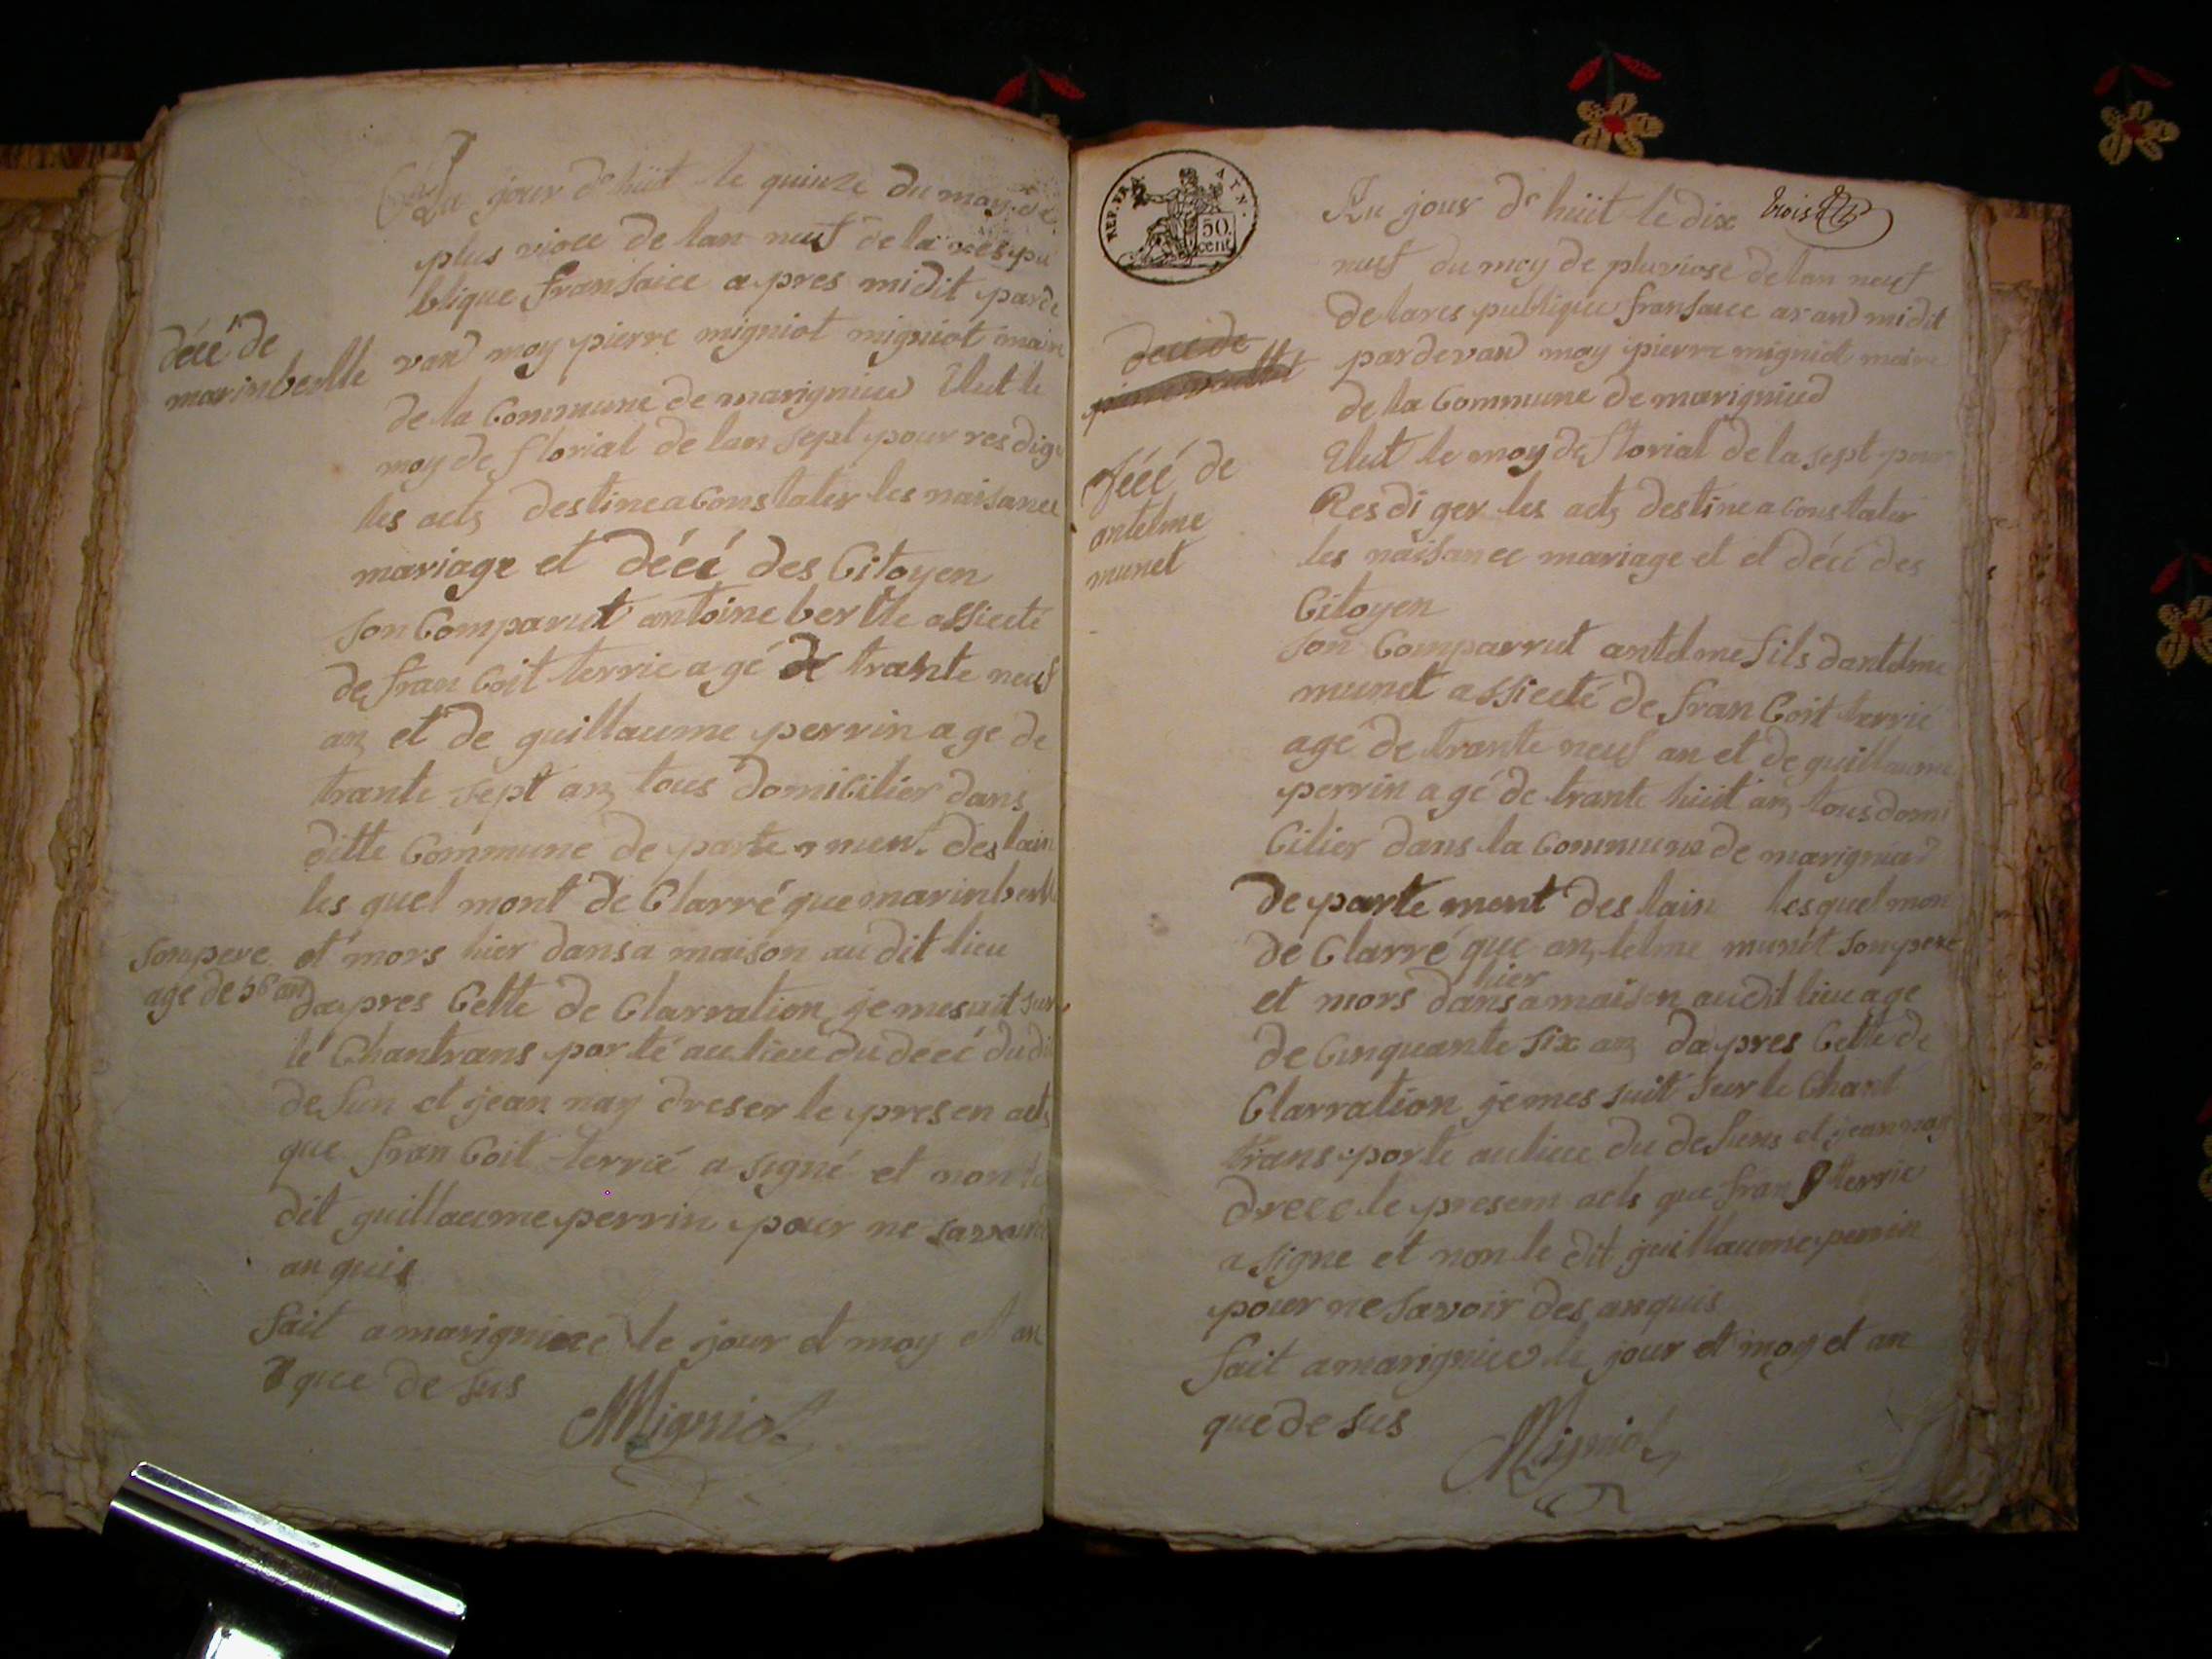 Au jour d'hüit le quinze du moy de
plus viose de lan neuf de la respu
blique fransaice a pres midit parde
vand moy pierre migniot migniot maire
de la Commune de marignieu Elut le
moy de florial de lan sept pour res dige
les acts destine a Constater les naisance
mariage et décé des Citoyen
son Comparut antoine bertle assicté
de fran Coit terrie a gé de trante neuf
an et de guillaume perrin a ge de
trante sept an tous domicilier dans
ditte Commune de parte ment des lain
les quel mont de Clarré que marin bertle
et mors hier dans a maison au dit lieu
da pres Cette de Clarration je me suit sur
lé Chantrans por té au lieu du décé du di
de fun et jean nay dreser le presen acts
que fran Coit terrié a signé et non le
dit guillaume perrin pour ne savoir
an quis
fait a marignieu le jour et moy et an
que de sus
Migniot
décé de
marin bertlle
son pere
age de 56 an
REP. FRA. 50. cent
trois
Au jour d'hüit le dix
neuf du moy de pluviose de lan neuf
de la res publique fransaice avand midit
pardevand moy pierre migniot maire
de la Commune de marigniud
Elut le moy de florial de la sept pour
Resdi ger les acts destine a Constater
les naisance mariage et et décé des
Citoyen
son Comparrut antelme fils dantelme
munet assicté de fran Coit terrié
agé de trante neuf an et de guillaume
perrin a gé de trante hüit an tous domi
Cilier dans la Commune de marigniud
de parte ment des lain lesquel mon
de Clarré que an telme munet son pere
et mors hier dans a maison au dit lieu age
de Cinquante six an da pres Cette de
Clarration je mes suit sur le Chant
trans porte au lieu du de funs et jean nay
drece le presem acts que fran terrie
a signe et non le dit guillaume perrin
pour ne savoir des an quis
fait a marignieu le jour et moy et an
que de sus
Migniot
dece de
décé de
antelme
munet